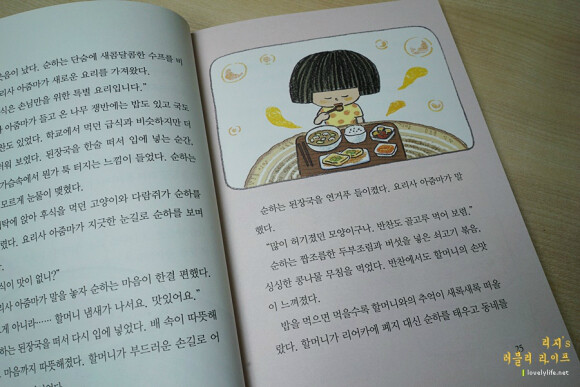 음이 났다. 순하는 단숨에 새콤달콤한 수프를 비
리사 아줌마가 새로운 요리를 가져왔다.
식은 손님만을 위한 특별 요리입니다."
사 아줌마가 들고 온 나무 쟁반에는 밥도 있고 국도
찬도 있었다. 학교에서 먹던 급식과 비슷하지만 더
러워 보였다. 된장국을 한술 떠서 입에 넣는 순간,
가슴속에서 뭔가 툭 터지는 느낌이 들었다. 순하는
모르게 눈물이 맺혔다.
탁에 앉아 후식을 먹던 고양이와 다람쥐가 순하를
렸다. 요리사 아줌마가 지긋한 눈길로 순하를 보며
식이 맛이 없니?"
리사 아줌마가 말을 놓자 순하는 마음이 한결 편했다.
게 아니라…… 할머니 냄새가 나서요. 맛있어요."
는 된장국을 떠서 다시 입에 넣었다. 배 속이 따뜻해
마음까지 따뜻해졌다. 할머니가 부드러운 손길로 어
순하는 된장국을 연거푸 들이켰다. 요리사 아줌마가 말
했다.
"많이 허기졌던 모양이구나. 반찬도 골고루 먹어 보렴."
순하는 짭조름한 두부조림과 버섯을 넣은 쇠고기 볶음,
심심한 콩나물 무침을 먹었다. 반찬에서도 할머니의 손맛
이 느껴졌다.
밥을 먹으면 먹을수록 할머니와의 추억이 새록새록 떠올
랐다. 할머니가 리어카에 폐지 대신 순하를 태우고 동네를
75
리지's
러블리 라이프
lovelylife.net